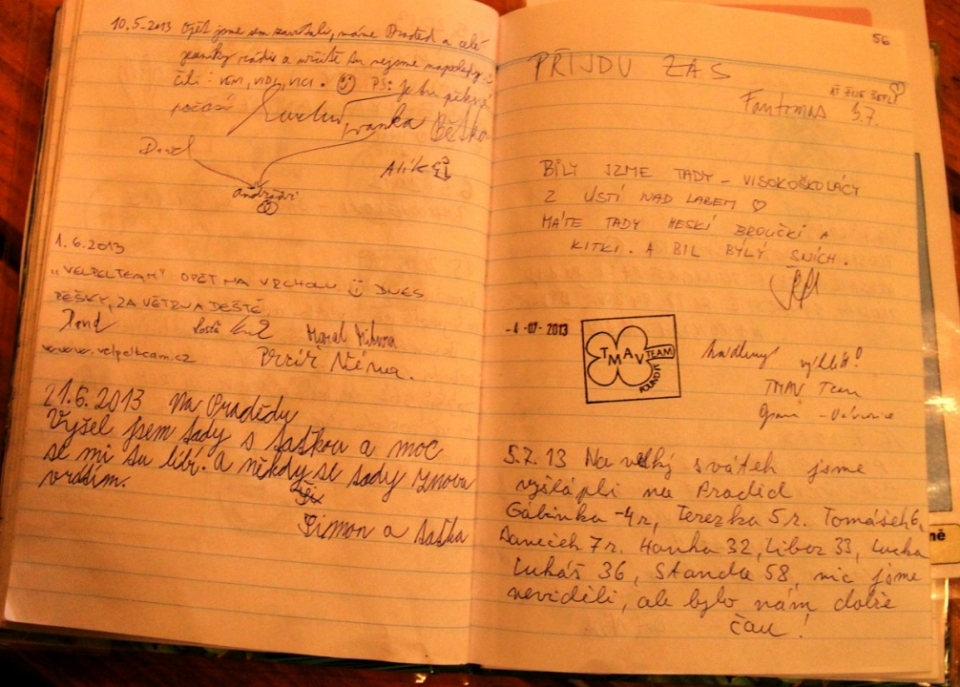 10.5.2013 Opět jsme sem zavítali, máme Praděd a celé
jeseníky rádi a určitě tu nejsme naposledy
čili: VENI, VIDI, VICI. PS: Je tu pěkné
počasí
Ivanka Běťka
David
Alík
1.6.2013
„VELPELTEAM" OPĚT NA VRCHOLU DNES
PĚŠKY, ZA VĚTRU A DEŠTĚ.
www.velpelteam.cz
21.6.2013 Na Pradědu
Vyšel jsem tady s Saškou a moc
se mi tu líbí. a někdy se tady znova
vrátím.
Šimon a Saška
56
PŘIJDU ZAS
AŤ ŽIJE
Fantomas 3.7.
BÍLY JZME TADY - VISOKOŠKOLÁCY
Z ÚSTÍ NAD LABEM ♡
MÁTE TADY HESKÍ BROUČKI A
KITKI. A BIL BÝLÝ SNÍCH.
-4 -07- 2013
TMAV TEAM
výhled!
TMAV Team
5.7.13 Na velký svátek jsme
vyšlápli na Praděd
Gábinka -4r, Terezka 5 r. Tomášek 6,
Daneček 7r. Hanka 32, Libor 33, Lucka
Lukáš 36, Standa 58, nic jsme
neviděli, ale bylo nám dobře
čau!
ně